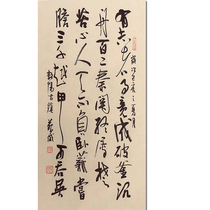 有志者事竟成破釜沉
舟百二秦關終屬楚
苦心人天不負臥薪嘗
膽三千越甲可吞吳